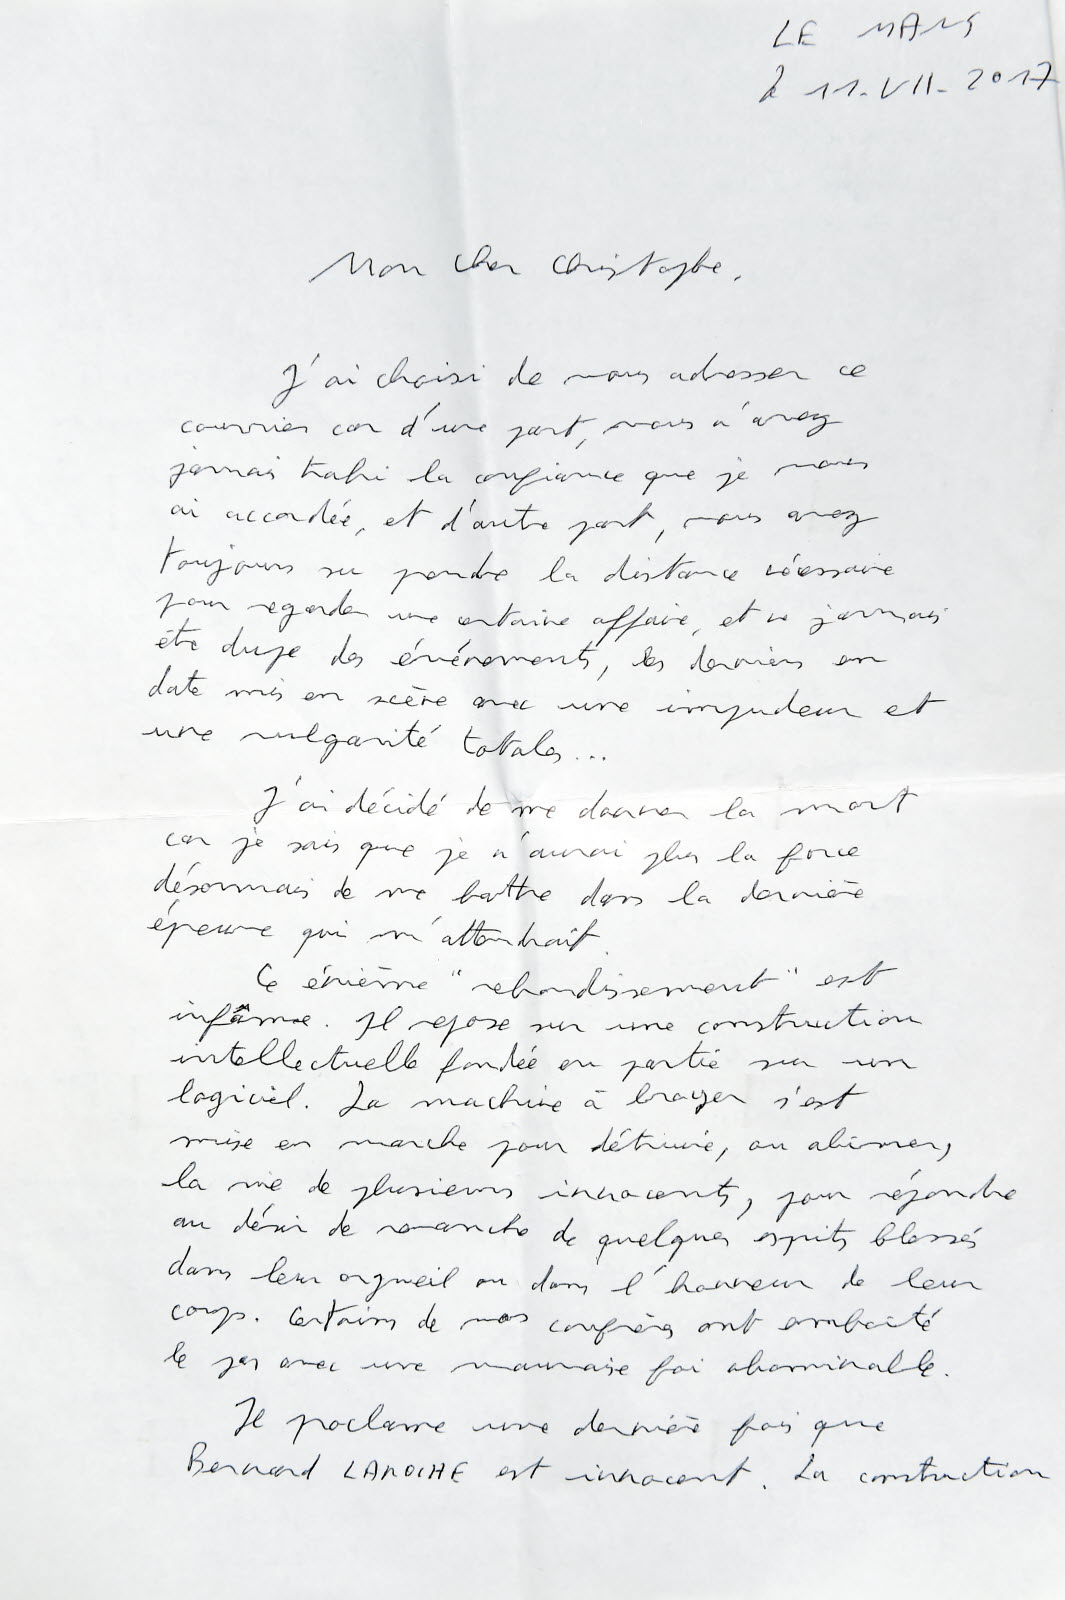 LE MANS
le 11.VII.2017
Mon cher Christophe,
J'ai choisi de vous adresser ce
courrier car d'une part, vous n'avez
jamais trahi la confiance que je vous
ai accordée, et d'autre part, vous avez
toujours su prendre la distance nécessaire
pour regarder une certaine affaire, et ne jamais
être dupe des événements, les derniers en
date mis en scène avec une impudeur et
une vulgarité totales...
J'ai décidé de me donner la mort
car je sais que je n'aurai plus la force
désormais de me battre dans la dernière
épreuve qui m'attendrait.
Ce énième "rebondissement" est
infâme. Il repose sur une construction
intellectuelle fondée en partie sur un
logiciel. La machine à broyer s'est
mise en marche pour détruire, ou abîmer,
la vie de plusieurs innocents, pour répondre
au désir de revanche de quelques esprits blessés
dans leur orgueil ou dans l'honneur de leur
corps. Certains de vos confrères ont emboité
le pas avec une mauvaise foi abominable.
Je proclame une dernière fois que
Bernard LAROCHE est innocent. La construction